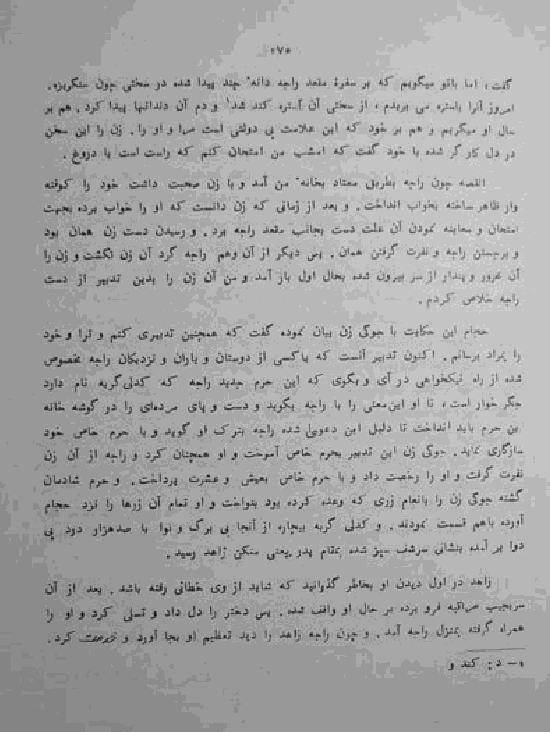 ۱۷۵
گفت، اما باتو میگویم که بر سفرهٔ مقعد راجه دانهٔ چند پیدا شده در سختی چون سنگریزه.
امروز آنرا باستره می بریدم، از سختی آن استره کند شد¹ و دم آن دندانها پیدا کرد. هم بر
حال او میگریم و هم بر خود که این علامت بی دولتی است مرا و او را. زن را این سخن
در دل کارگر شده با خود گفت که امشب من امتحان کنم که راست است یا دروغ.
القصه چون راجه بطریق معتاد بخانهٔ من آمد و با زن صحبت داشت خود را کوفته
وار ظاهر ساخته بخواب انداخت. و بعد از زمانی که زن دانست که او را خواب برده بجهت
امتحان و معاینه نمودن آن علت دست بجانب مقعد راجه برد. و رسیدن دست زن همان بود
و برجستن راجه و نفرت گرفتن همان. پس دیگر از آن وهم راجه گرد آن زن نگشت و زن را
آن غرور و پندار از سر بیرون شده بحال اول باز آمد و من آن زن را بدین تدبیر از دست
راجه خلاص کردم.
حجام این حکایت با جوگی زن بیان نموده گفت که همچنین تدبیری کنم و ترا و خود
را بمراد برسانم. اکنون تدبیر آنست که بیاکسی از دوستان و یاران و نزدیکان راجه مخصوص
شده از راه نیکخواهی در آی و بگوی که این حرم جدید راجه که کدلی گربه نام دارد
جگر خوار است، تا او این معنی را با راجه بگوید و دست و پای مرده‌ای را در گوشه خانه
این حرم باید انداخت تا دلیل این دعوی شده راجه بترک او گوید و با حرم خاص خود
سازگاری نماید. جوگی زن این تدبیر بحرم خاص آموخت و او همچنان کرد و راجه از آن زن
نفرت گرفت و او را رخصت داد و با حرم خاص بعیش و عشرت پرداخت. و حرم شادمان
گشته جوگی زن را بانعام زری که وعده کرده بود بنواخت و او تمام آن زرها را نزد حجام
آورده باهم قسمت نمودند. و کدلی گربه بیچاره از آنجا بی برگ و نوا با صدهزار درد بی
دوا بر آمده بنشانی سرشف سبز شده بمقام پدر یعنی مسکن زاهد رسید.
زاهد در اول دیدن او بخاطر گذرانید که شاید از وی خطائی رفته باشد. بعد از آن
سربجیب مراقبه فرو برده بر حال او واقف شده. پس دختر را دل داد و تسلی کرد و او را
همراه گرفته بمنزل راجه آمد. و چون راجه زاهد را دید تعظیم او بجا آورد و کرد.
۱- د: کند و